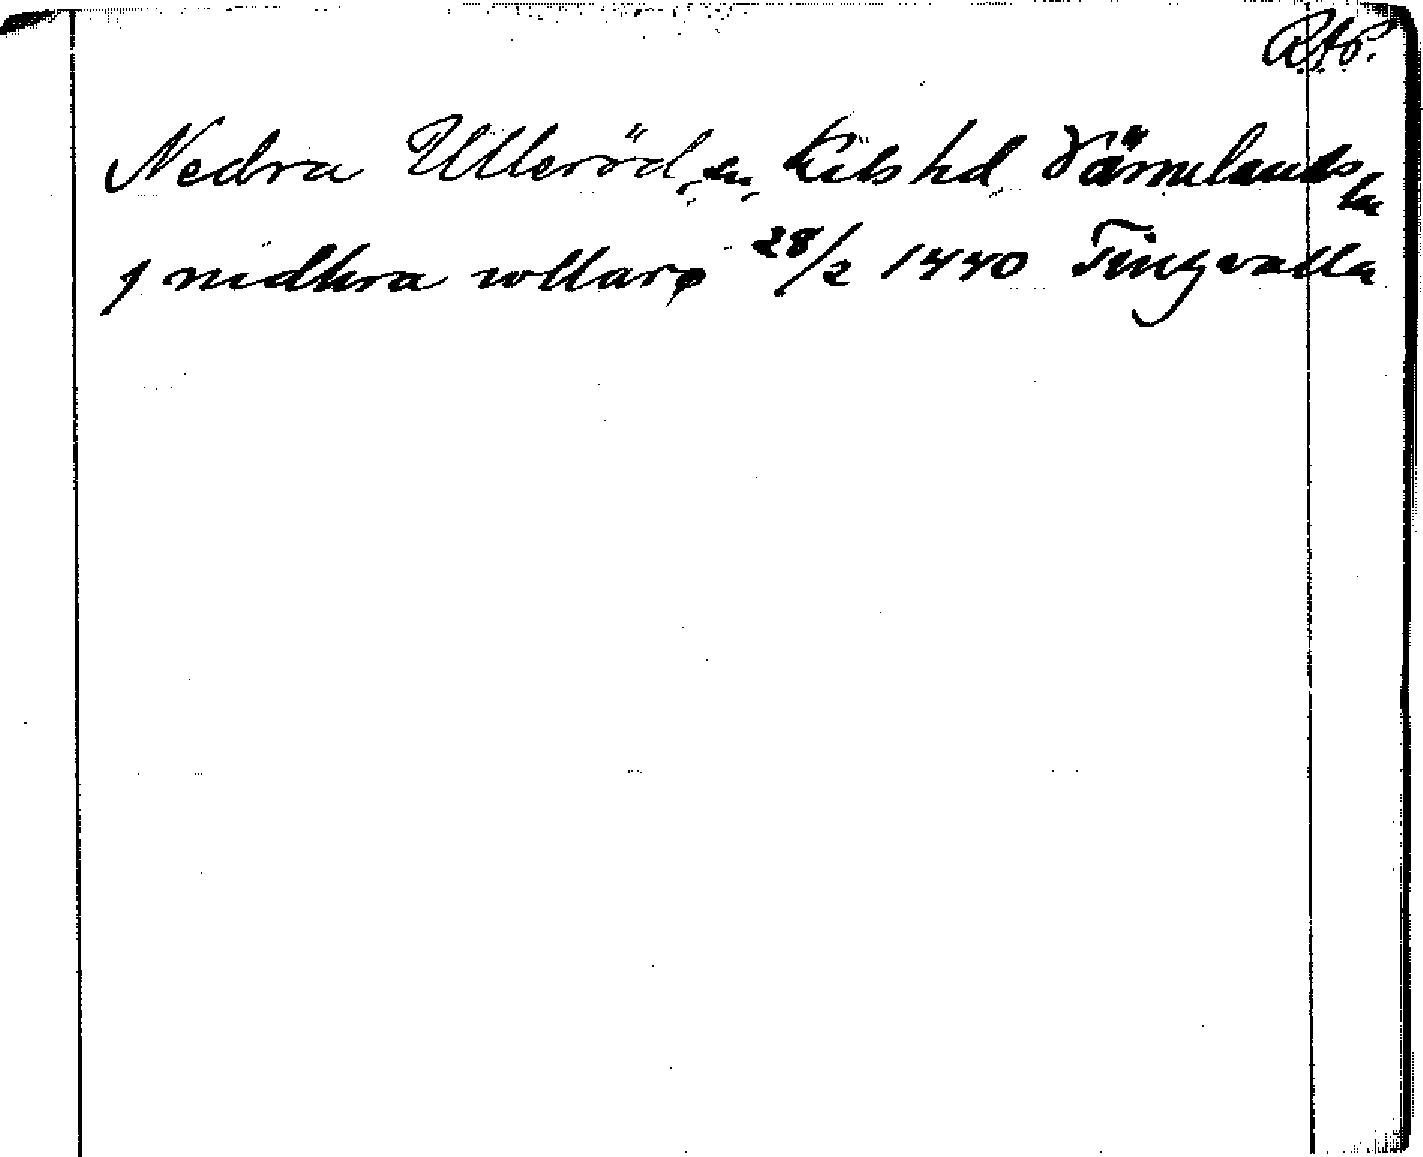 R.A.P.
Nedra Ulleröd, sn, Kils hd Värmlands
län
j nidhra wllarø 28/2 1440 Tingvalla